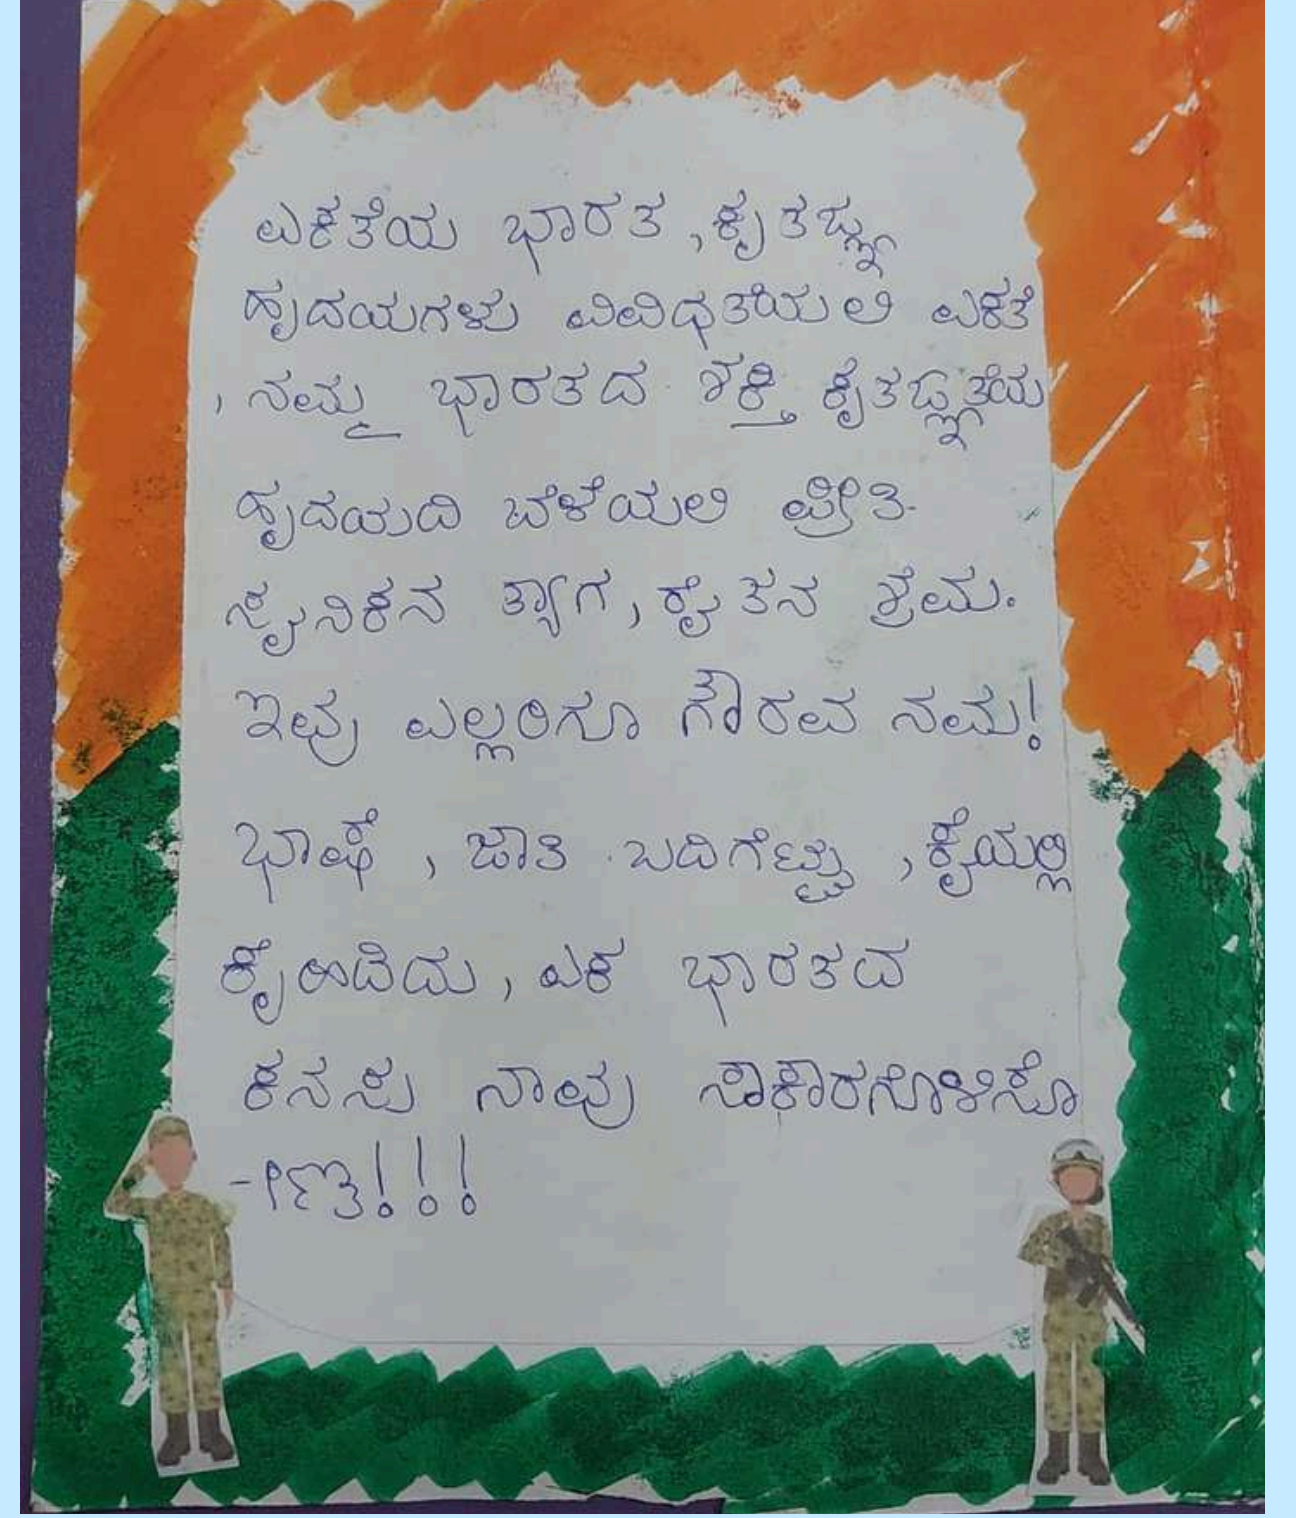 ಏಕತೆಯ ಭಾರತ , ಕೃತಜ್ಞ
ಹೃದಯಗಳು ವಿವಿಧತೆಯಲಿ ಏಕತೆ
, ನಮ್ಮ ಭಾರತದ ಶಕ್ತಿ ಕೃತಜ್ಞತೆಯ
ಹೃದಯದಿ ಬೆಳೆಯಲಿ ಪ್ರೀತಿ.
ಸೈನಿಕನ ತ್ಯಾಗ , ರೈತನ ಶ್ರಮ.
ಇವು ಎಲ್ಲರಿಗೂ ಗೌರವ ನಮ!
ಭಾಷೆ , ಜಾತಿ ಬದಿಗೆಟ್ಟು , ಕೈಯಲ್ಲಿ
ಕೈಹಿಡಿದು , ಏಕ ಭಾರತದ
ಕನಸು ನಾವು ಸಾಕಾರಗೊಳಿಸೊ
-ೀಣ!!!